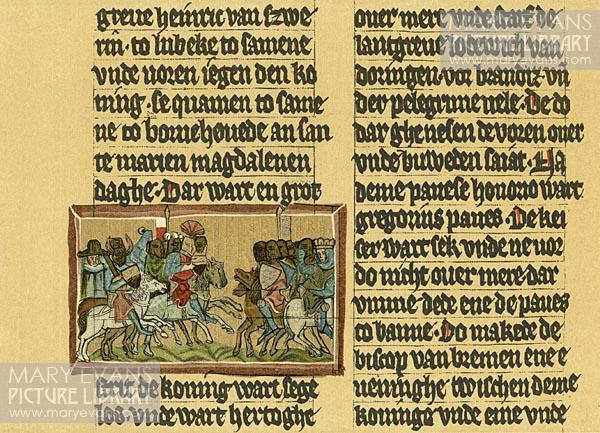 greue heinric van szwe
rin· to lubeke to samene
vnde uoren iegen den ko
ning· se quamen to same
ne to bornehouede an san
te marien magdalenen
daghe· Dar wart en grot
strit· de koning wart sege
los· vnde wart hertoghe
ouer mere vnde
lantgreue lodewich van
doringen· vor brandiz· vn
der pelegrime vele· De do
dar ghenesen de voren ouer
vnde buweden saiat· Na
deme pauese honorio wart
gregorius paues· De kei
ser wart sek· vnde ne uor
do nicht ouer mere· dar
vmme dede ene de paues
to banne· Do makede de
biscop van bremen ene
ueninghe twischen deme
koninge vnde eme vnde
MARY EVANS
PICTURE LIBRARY
www.maryevans.com
MARY EVANS
PICTURE LIBRARY
www.maryevans.com
MARY EVANS
PICTURE LIBRARY
www.maryevans.com